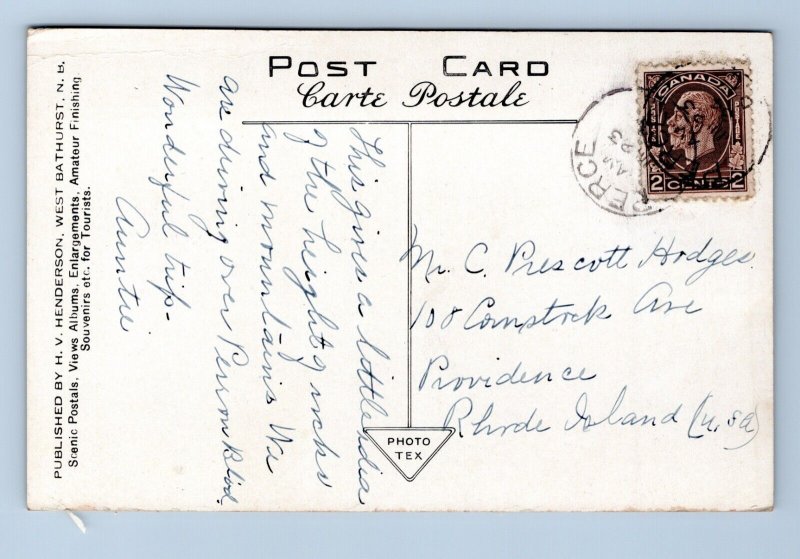 POST CARD
Carte Postale
CANADA
2 CENTS 2
PERCE
PUBLISHED BY H. V. HENDERSON, WEST BATHURST, N. B.
Scenic Postals, Views Albums, Enlargements, Amateur Finishing
Souvenirs etc. for Tourists.
This gives a little idia
of the height of rocks
and mountains We
are driving over Perron Blvd.
Wonderful trip -
Auntie
Mr. C. Prescott Hodges
108 Comstock Ave
Providence
Rhode Island (U.S.A)
PHOTO
TEX